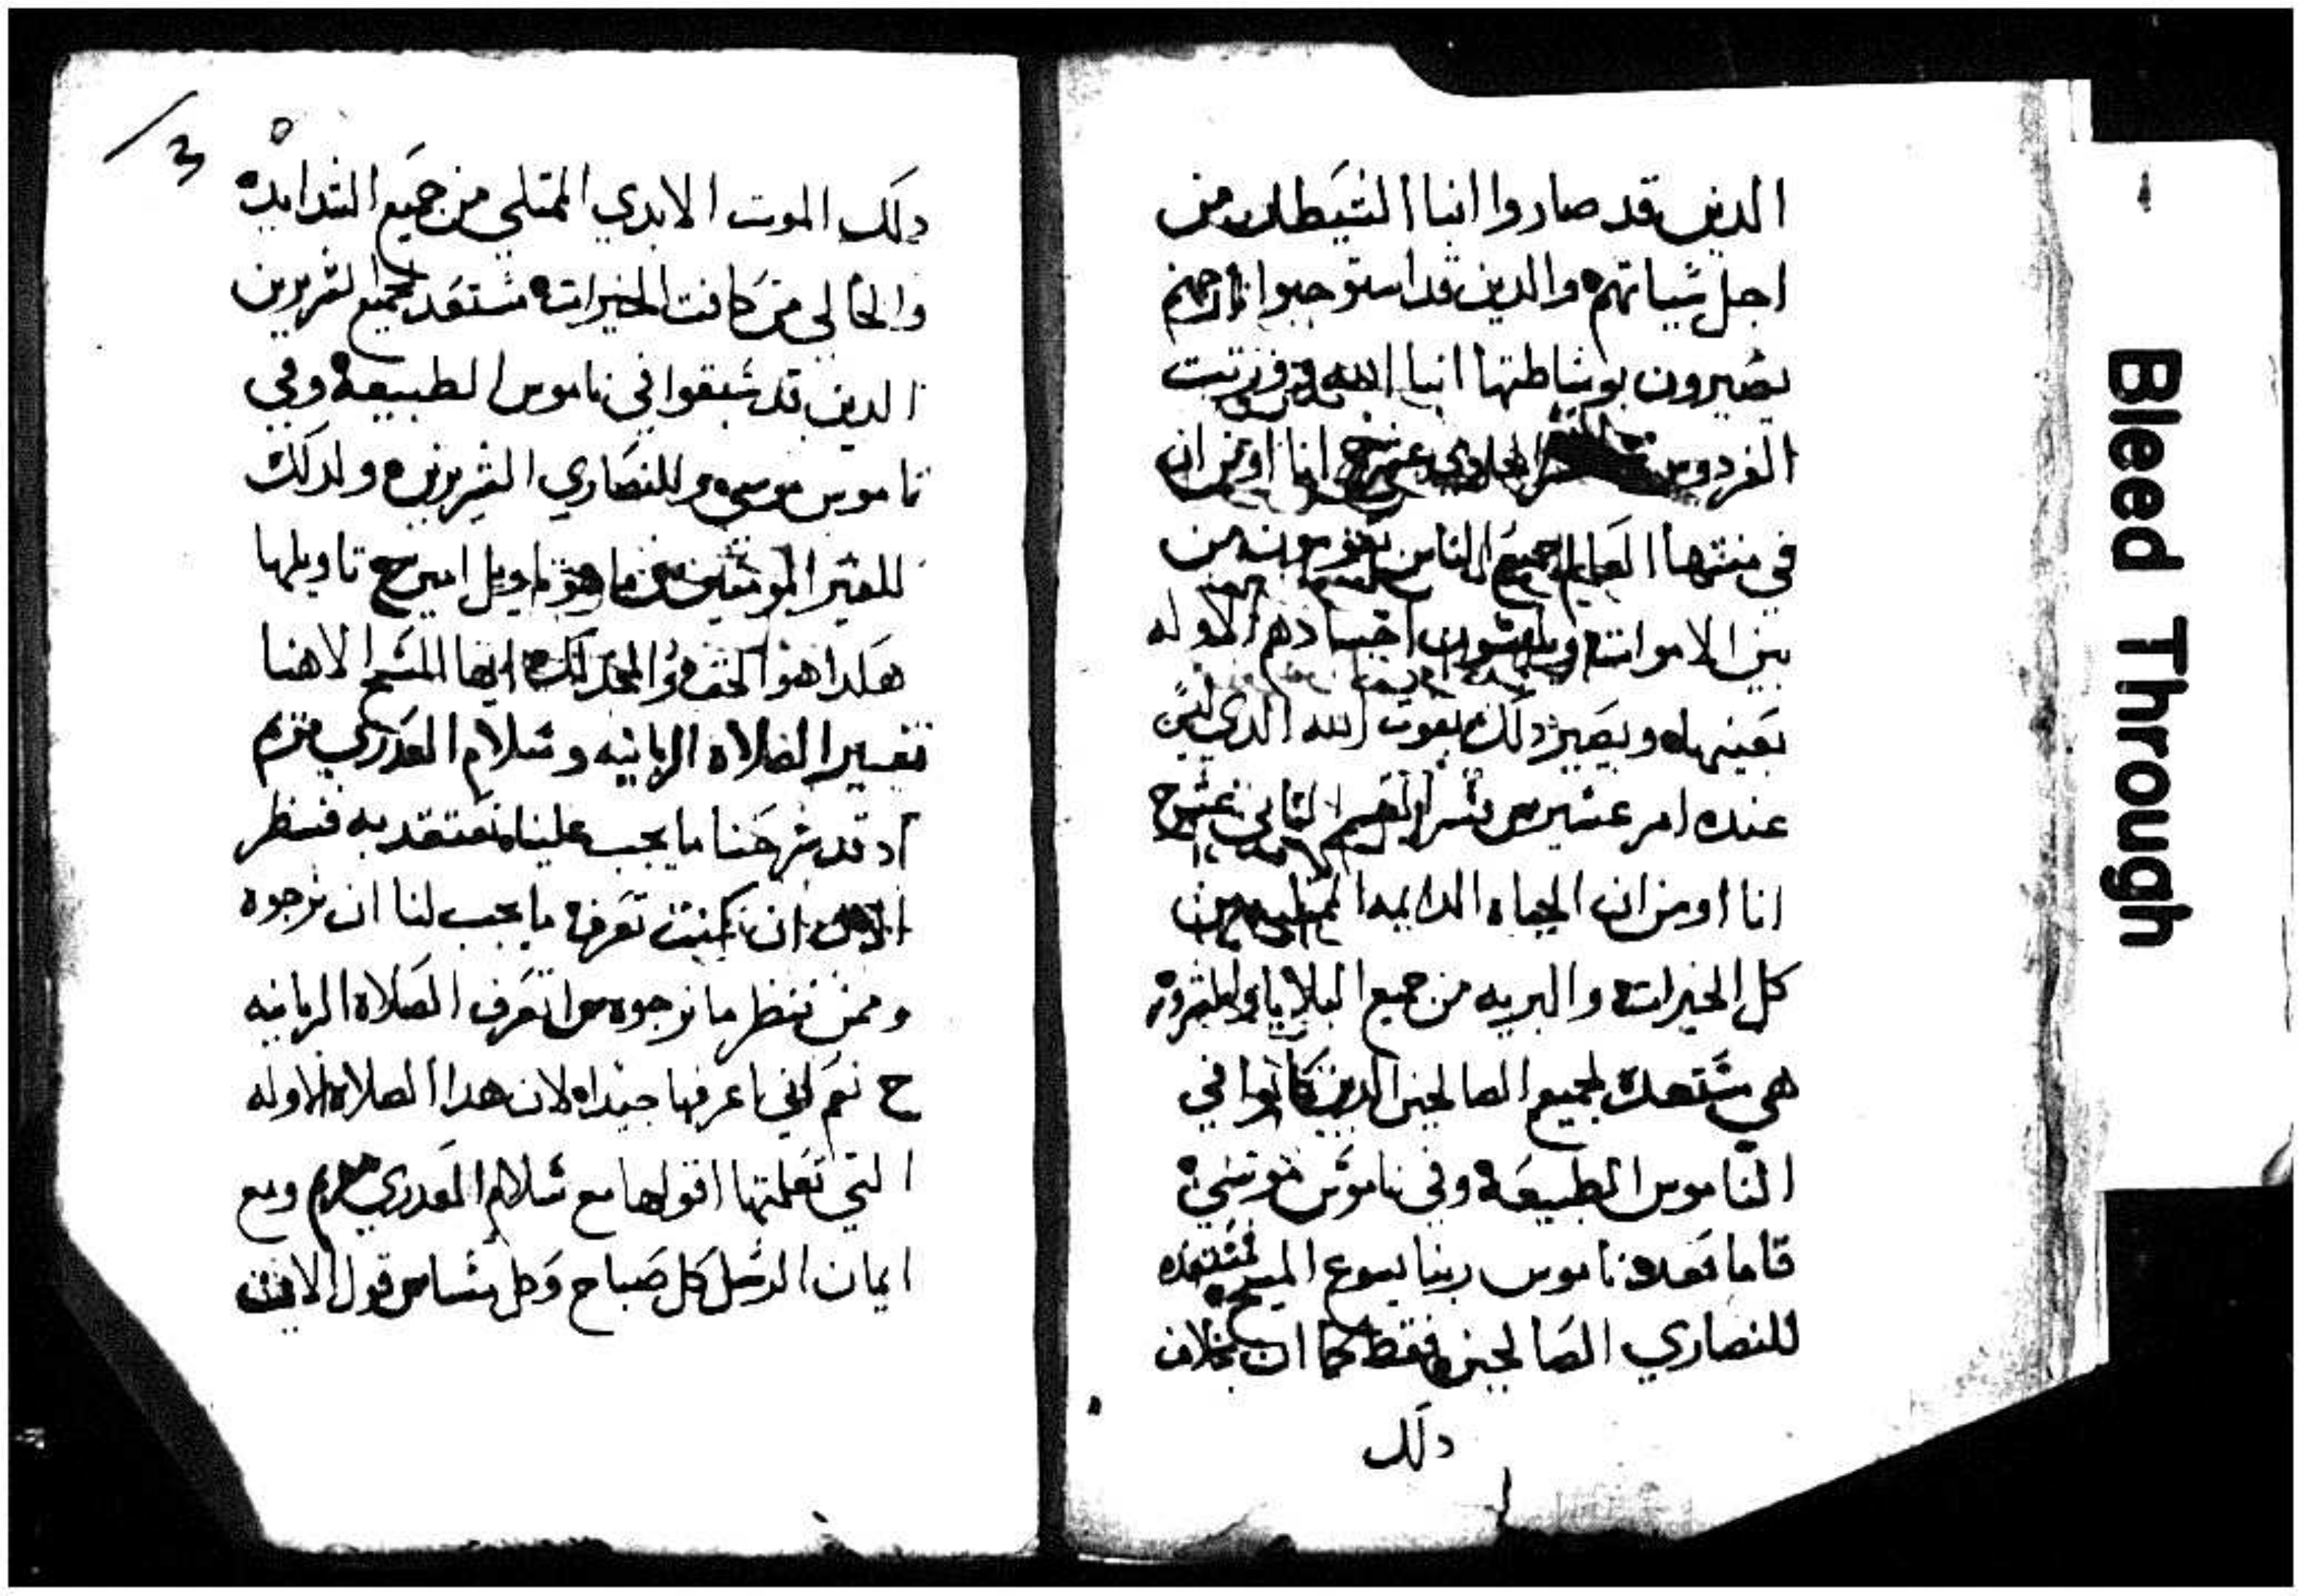 الدين قد صاروا ابنا الشيطان من
اجل شياتهم والدين قد استوجبوا نار جهنم
يصيرون بوشاطتها ابنا الله و
الفردوس الحادي عشر انا اومن ان
في منتها العالم جميع الناس يقومون من
بين الاموات و اجسادهم الاوله
بعينها ويصير دلك بقوت الله الدي ليس
عنده امر عشير س القسم الثاني عشر ج
انا اومن ان الحياه الدايمه من
كل الخيرات والبريه من جميع البلايا والشرور
هي مشتعده لجميع الصالحين الدين كانوا في
الناموس الطبيعه وفي ناموس موسي
فاما بعد ناموس ربنا يسوع المسيح مشتعده
للنصاري الصالحين فقط كما ان بخلاف
دلك
3
دلك الموت الابدي الممتلي من جميع الشدايد
والخالي من كافت الخيرات مستعد لجميع الشريرين
الدين قد شبقوا في ناموس الطبيعه وفي
ناموس موسي وللنصاري الشريرين ولدلك
للغير المومنين س ما هو تاويل امين ج تاويلها
هكدا هو الحق والمجد لك ايها المسيح الاهنا
تفسير الصلاه الربانيه وسلام العدري مريم
اد قد شرحنا ما يجب علينا نعتقد به فننظر
الان ان كنت تعرف ما يجب لنا ان نرجوه
وممن ننظر ما نرجوه س اتعرف الصلاه الربانيه
ج نعم اني اعرفها جيدا لان هدا الصلاه الاوله
التي تعلمتها اقولها مع سلام العدري مريم ومع
ايمان الرسل كل صباح وكل مسا س قول الان
Bleed Through